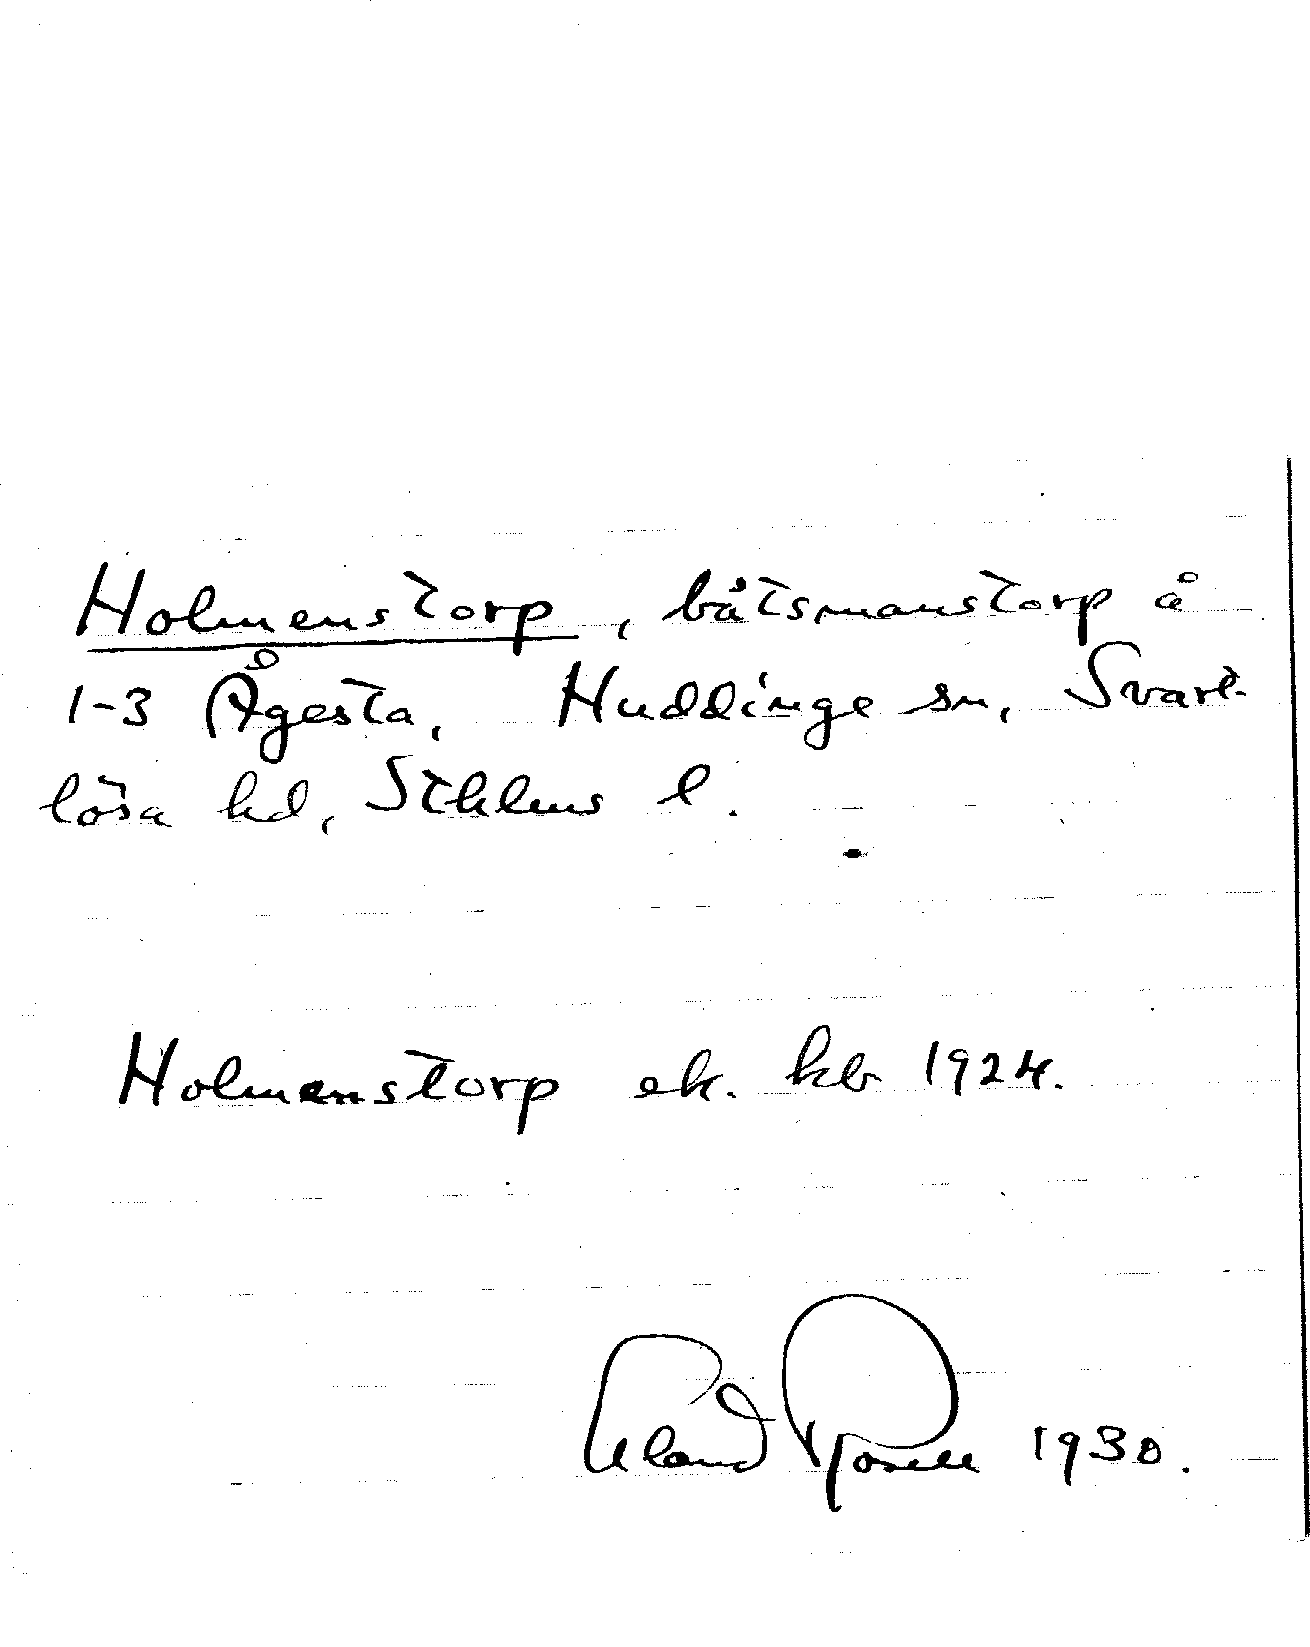 Holmenstorp, båtsmanstorp å
1-3 Ågesta, Huddinge sn, Svart-
lösa hd, Sthlms l.
Holmenstorp ek. kb 1924.
1930.